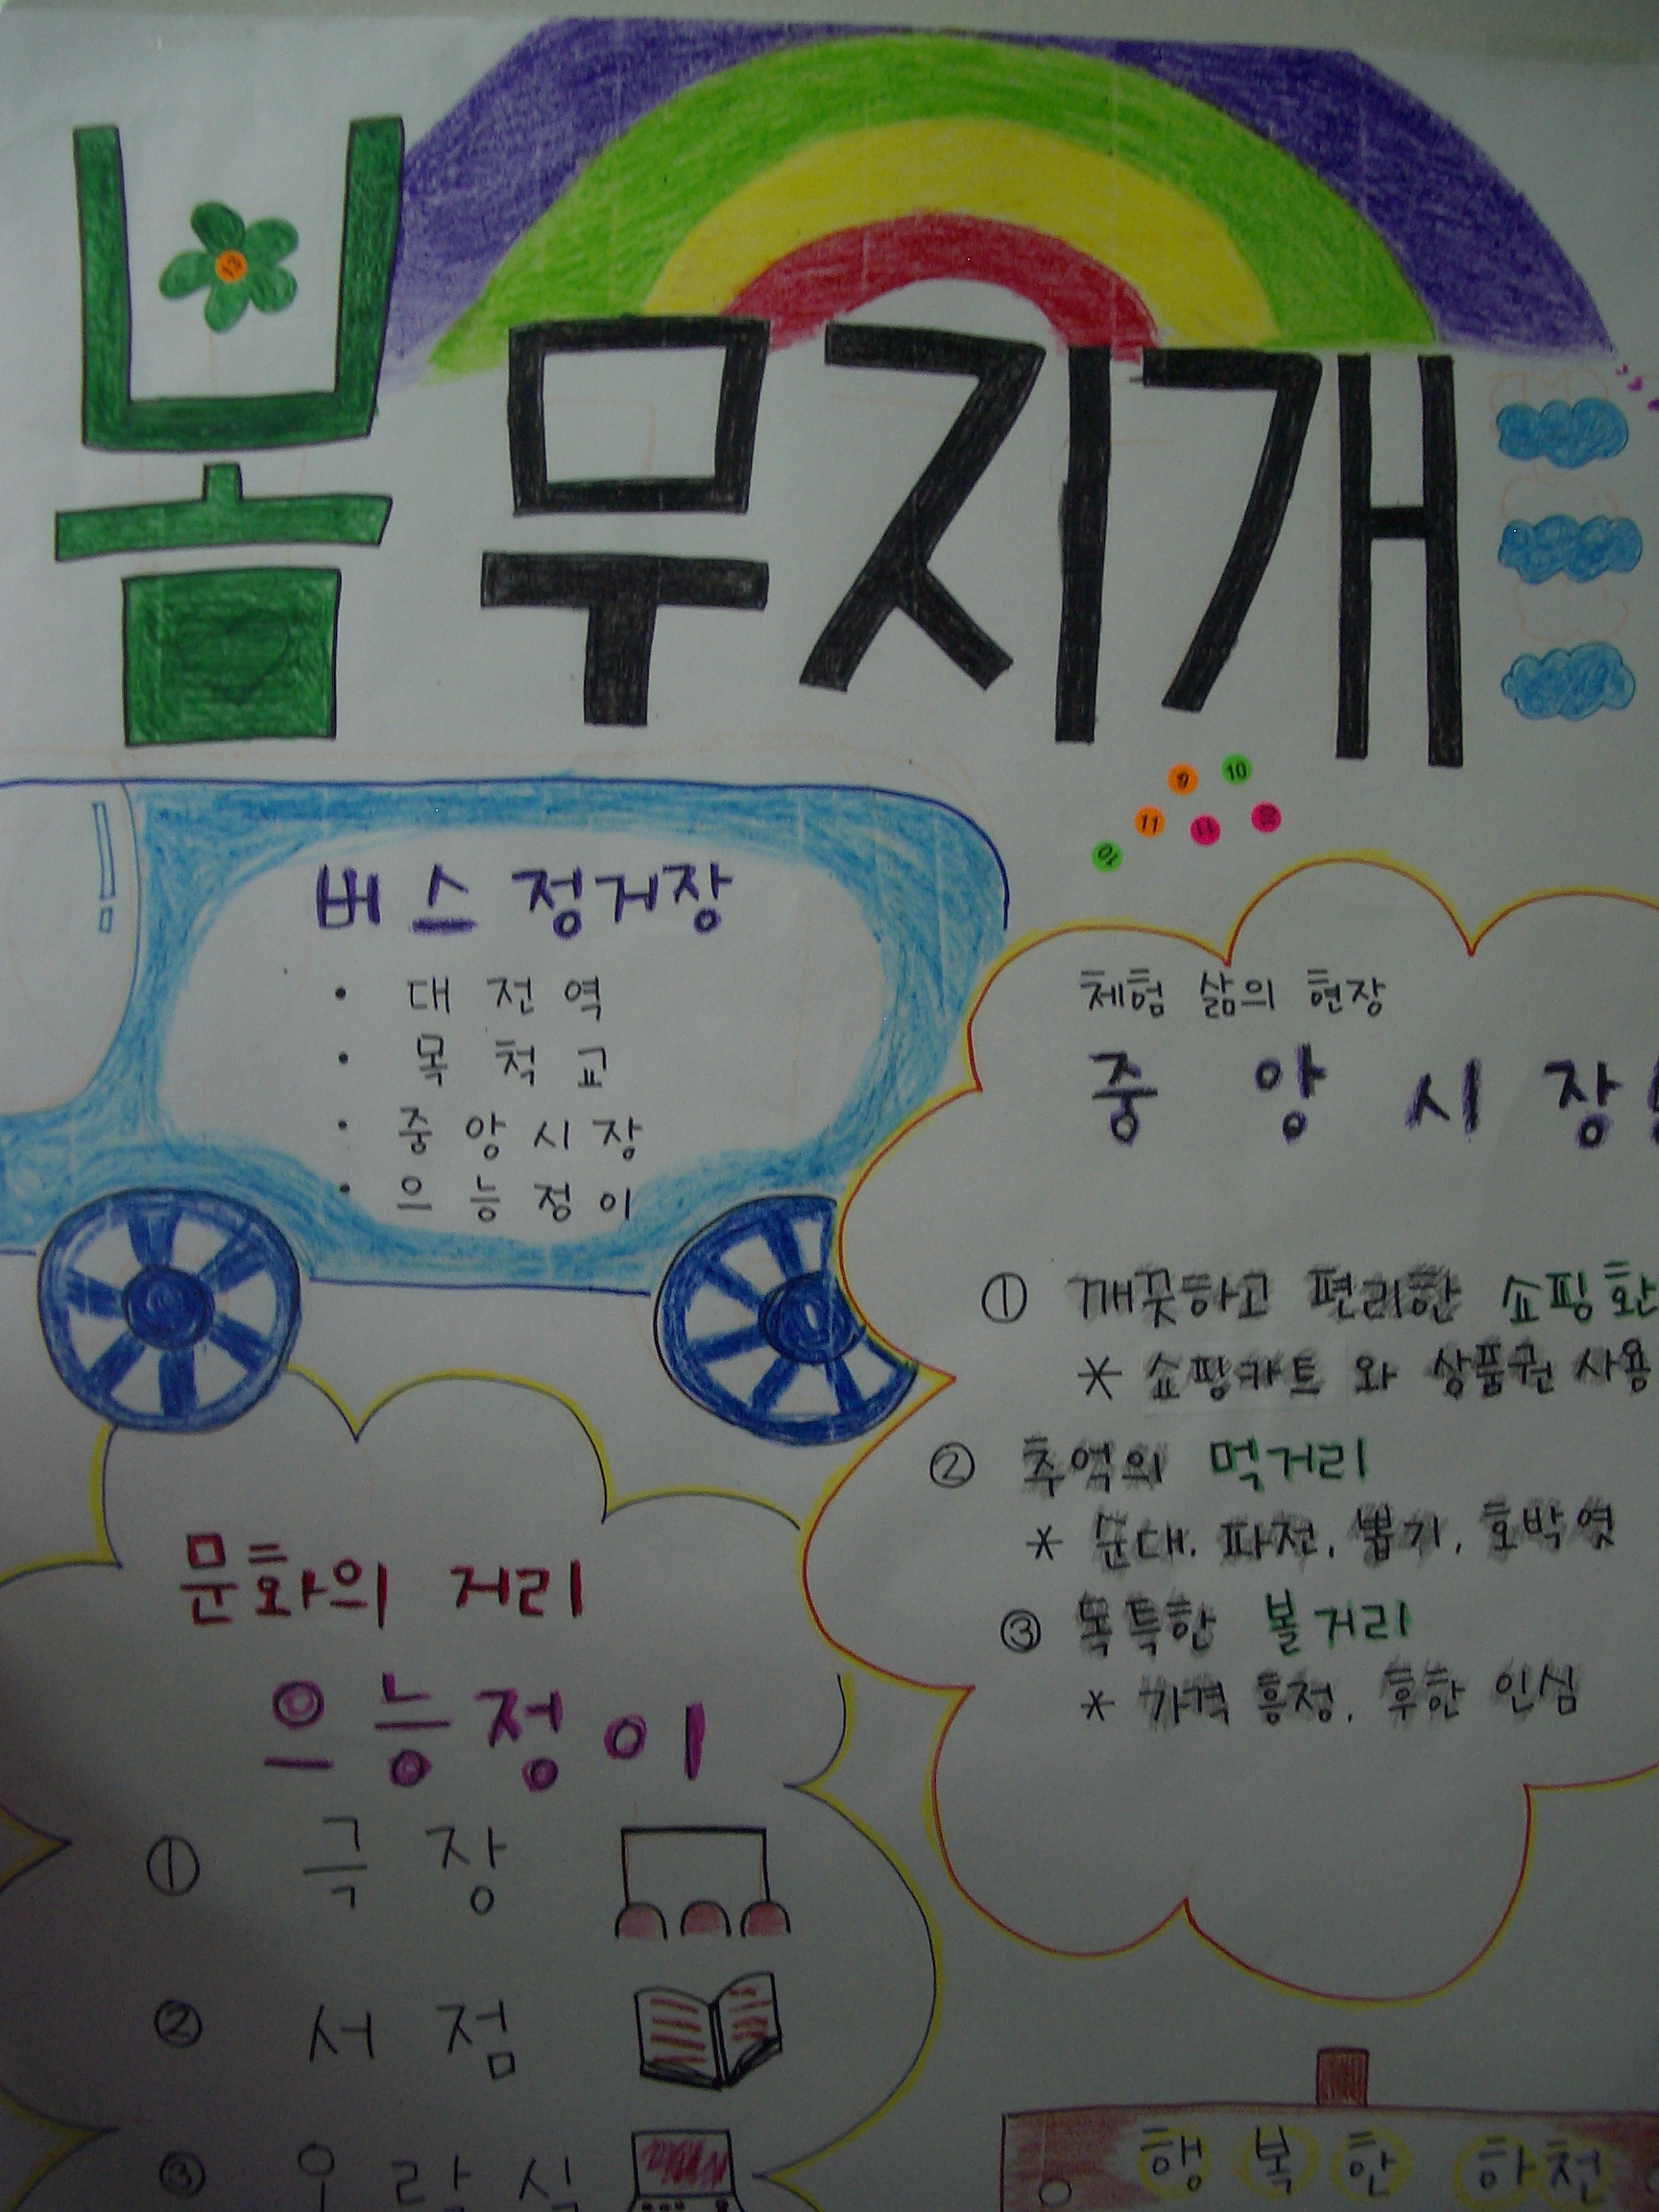 봄 무지개
13
9 10
11 11 20
10
버스정거장
• 대전역
• 목척교
• 중앙시장
• 으능정이
체험 삶의 현장
중앙시장!
① 깨끗하고 편리한 쇼핑환
* 쇼핑카트 와 상품권 사용
② 추억의 먹거리
* 순대. 파전. 뽑기. 호박엿
③ 독특한 볼거리
* 가격 흥정. 후한 인심
문화의 거리
으능정이
① 극장
② 서점
③ 오락실
행복한 하천